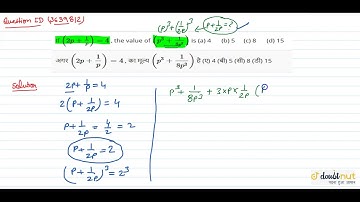 Question ID (3639812)
(P)³+(1/2P)³ ← P+1/2P=?
If (2p + 1/p) = 4, the value of (p³ + 1/8p³) is (a) 4 (b) 5 (c) 8 (d) 15
अगर (2p + 1/p) = 4, का मूल्य (p³ + 1/8p³) है (ए) 4 (बी) 5 (सी) 8 (डी) 15
Solution
2P+1/P=4
2(P+1/2P)=4
P+1/2P=4/2=2
P+1/2P=2
(P+1/2P)³=2³
P³+1/8P³+3×P×1/2P (P
doubtnut